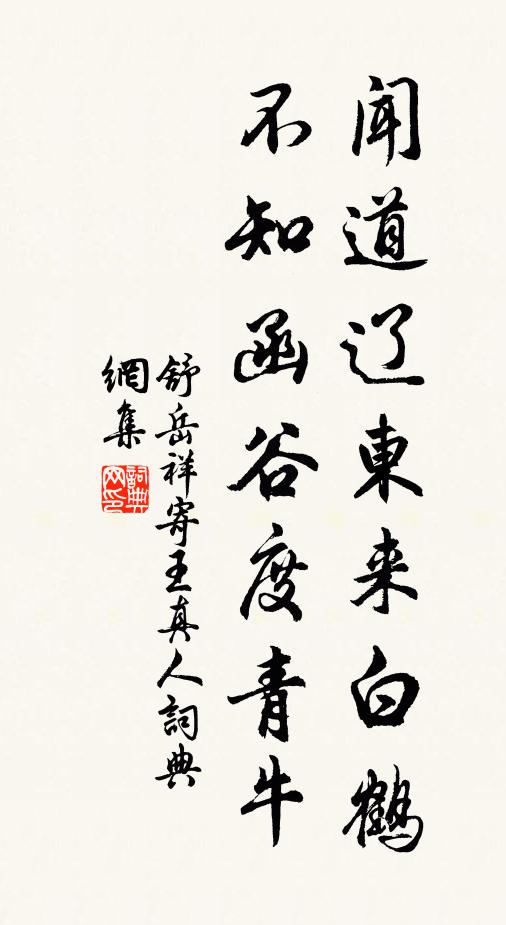 闻道辽東来白鶴
不知函谷度青牛
舒岳祥寄王真人詞典
網集
詞典网印